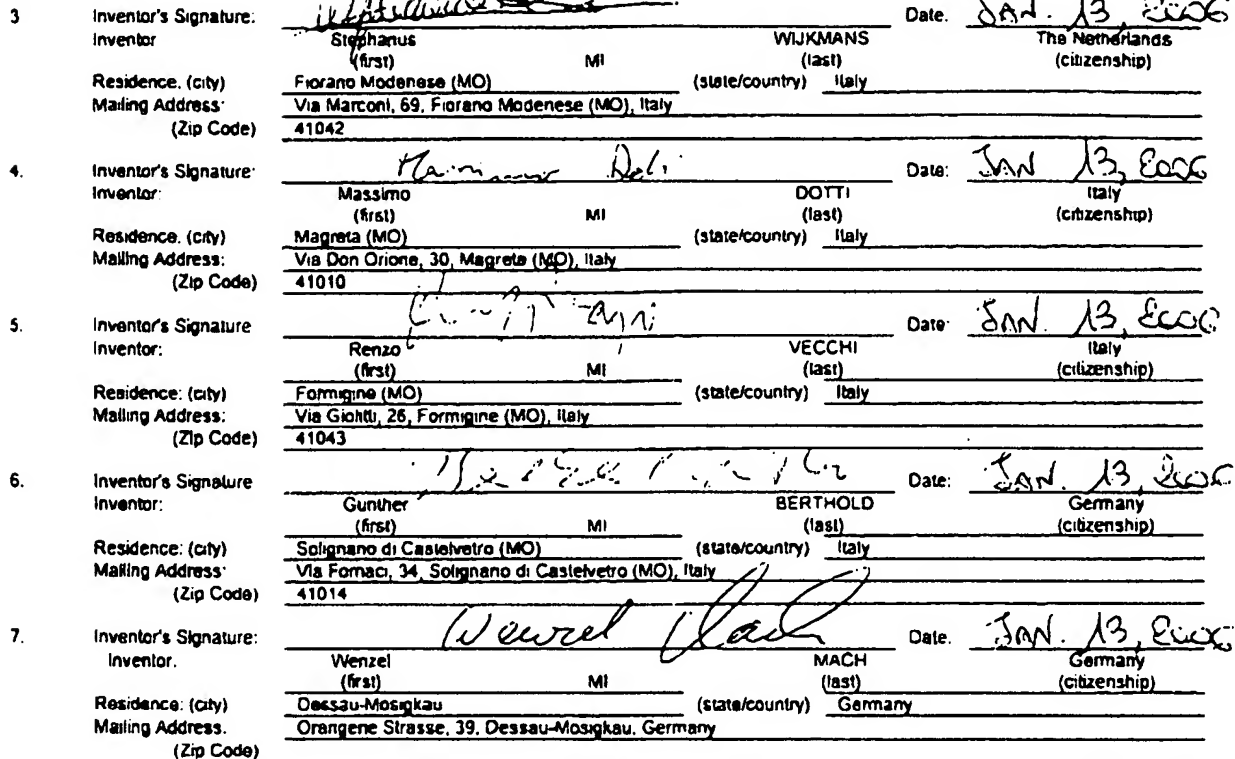 3 Inventor's Signature: Date. JAN. 13, 2006
Inventor Stephanus WIJKMANS The Netherlands
(first) MI (last) (citizenship)
Residence. (city) Fiorano Modenese (MO) (state/country) Italy
Mailing Address: Via Marconi, 69, Fiorano Modenese (MO), Italy
(Zip Code) 41042
4. Inventor's Signature: Date: JAN 13, 2006
Inventor: Massimo DOTTI Italy
(first) MI (last) (citizenship)
Residence. (city) Magreta (MO) (state/country) Italy
Mailing Address: Via Don Orione, 30, Magreta (MO), Italy
(Zip Code) 41010
5. Inventor's Signature Date: JAN. 13, 2006
Inventor: Renzo VECCHI Italy
(first) MI (last) (citizenship)
Residence: (city) Formigine (MO) (state/country) Italy
Mailing Address: Via Giolitti, 26, Formigine (MO), Italy
(Zip Code) 41043
6. Inventor's Signature Date: JAN. 13, 2006
Inventor: Gunther BERTHOLD Germany
(first) MI (last) (citizenship)
Residence: (city) Solignano di Castelvetro (MO) (state/country) Italy
Mailing Address: Via Fornaci, 34, Solignano di Castelvetro (MO), Italy
(Zip Code) 41014
7. Inventor's Signature: Wenzel Mach Date. JAN. 13, 2006
Inventor. Wenzel MACH Germany
(first) MI (last) (citizenship)
Residence: (city) Dessau-Mosigkau (state/country) Germany
Mailing Address. Orangene Strasse, 39, Dessau-Mosigkau, Germany
(Zip Code)